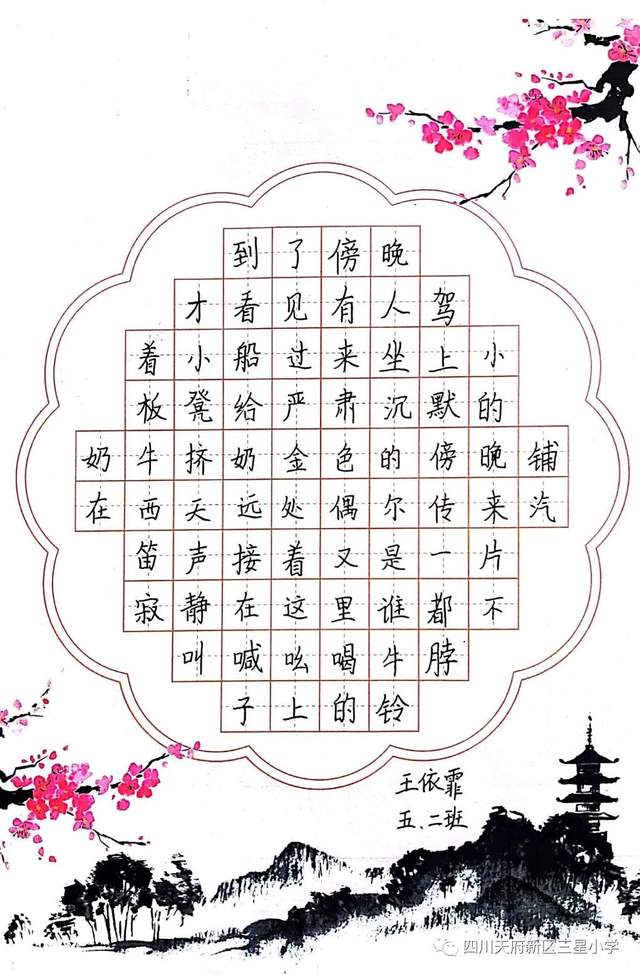 到了傍晚
才看见有人驾
着小船过来坐上小
板凳给严肃沉默的
奶牛挤奶金色的傍晚铺
在西天远处偶尔传来汽
笛声接着又是一片
寂静在这里谁都不
叫喊吆喝牛脖
子上的铃
王依霏
五.二班
四川天府新区三星小学